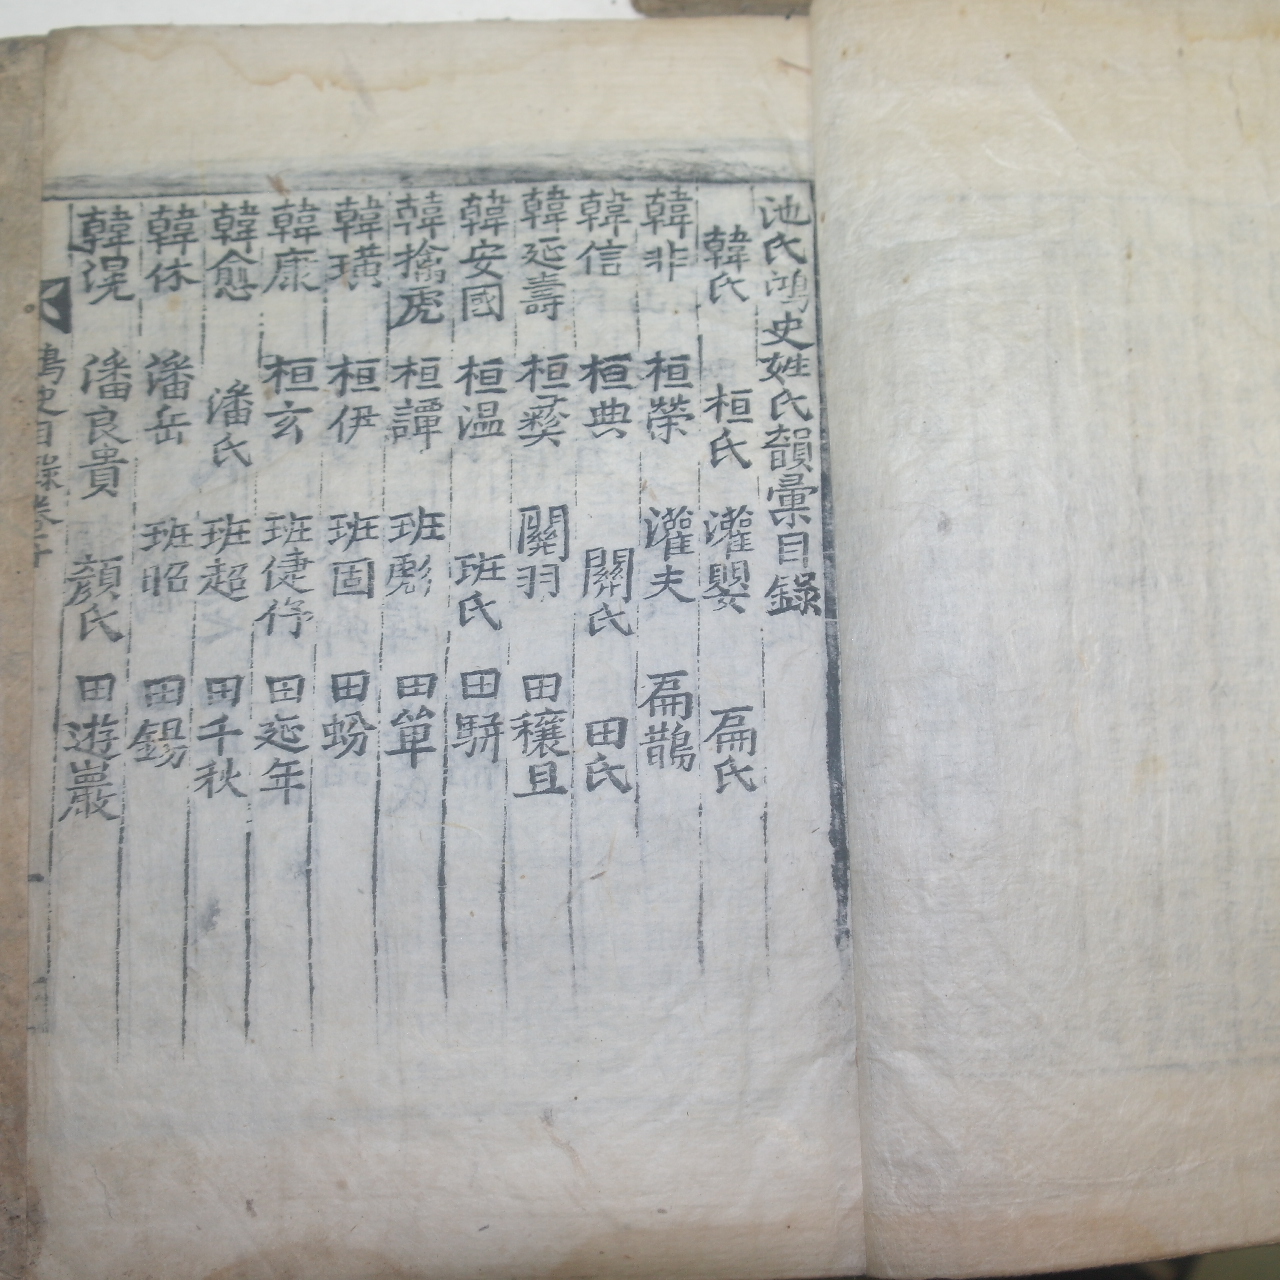 池氏鴻史姓氏韻彙目錄
韓氏 桓氏 灌嬰 扁氏
韓非 桓榮 灌夫 扁鵲
韓信 桓典 關氏 田氏
韓延壽 桓彛 關羽 田穰且
韓安國 桓温 班氏 田駢
韓擒虎 桓譚 班彪 田單
韓璜 桓伊 班固 田蚡
韓康 桓玄 班倢伃 田延年
韓愈 潘氏 班超 田千秋
韓休 潘岳 班昭 田錫
韓滉 潘良貴 顔氏 田遊巖
鴻史目錄卷